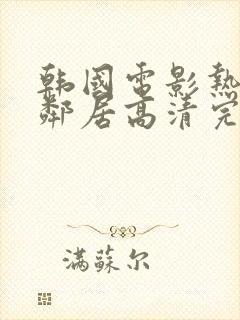 韩國電影熱
鄰居高清完
滿蘇尔